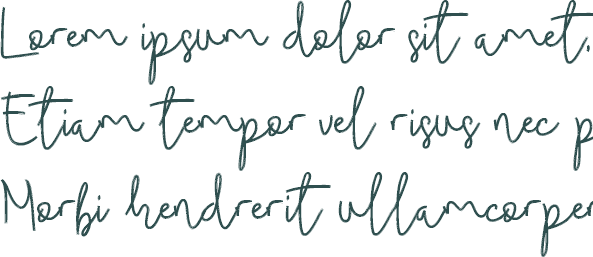 Lorem ipsum dolor sit amet.
Etiam tempor vel risus nec p
Morbi hendrerit ullamcorper